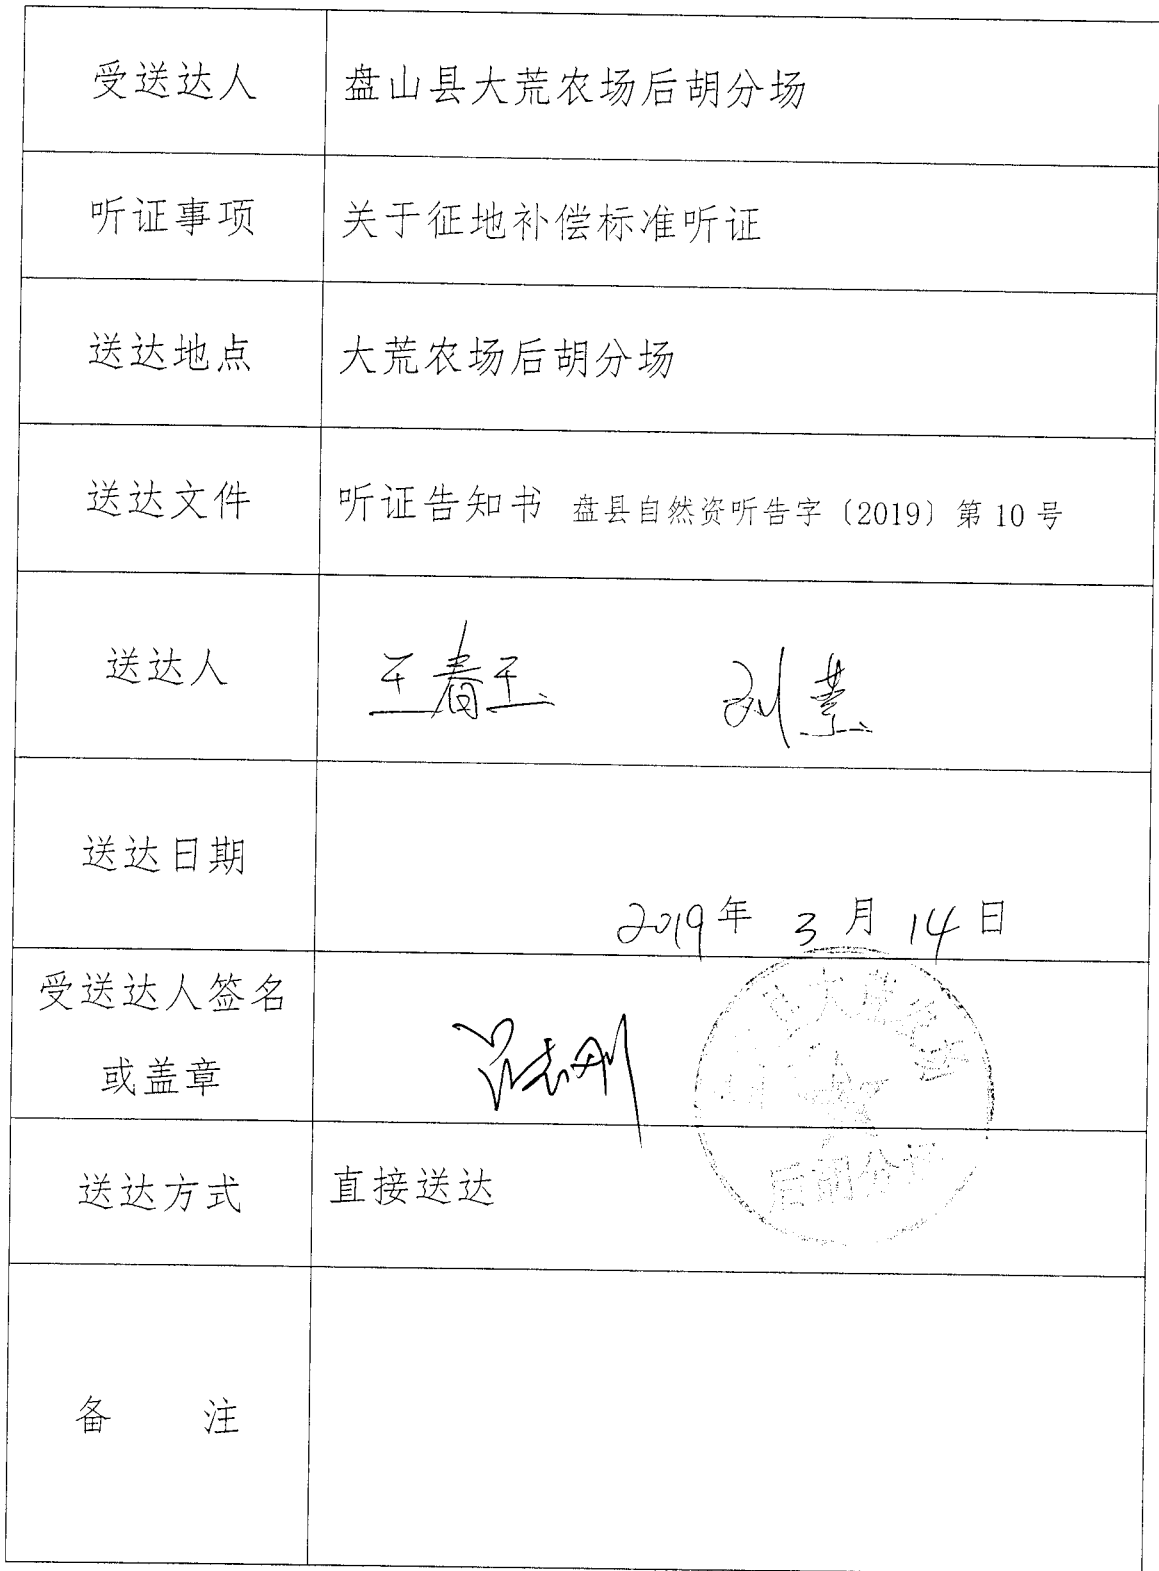 受送达人 盘山县大荒农场后胡分场
听证事项 关于征地补偿标准听证
送达地点 大荒农场后胡分场
送达文件 听证告知书 盘县自然资听告字〔2019〕第 10 号
送达人 王春玉 刘
送达日期
2019年 3 月 14 日
受送达人签名
或盖章
大荒农场
后胡分场
送达方式 直接送达
备 注